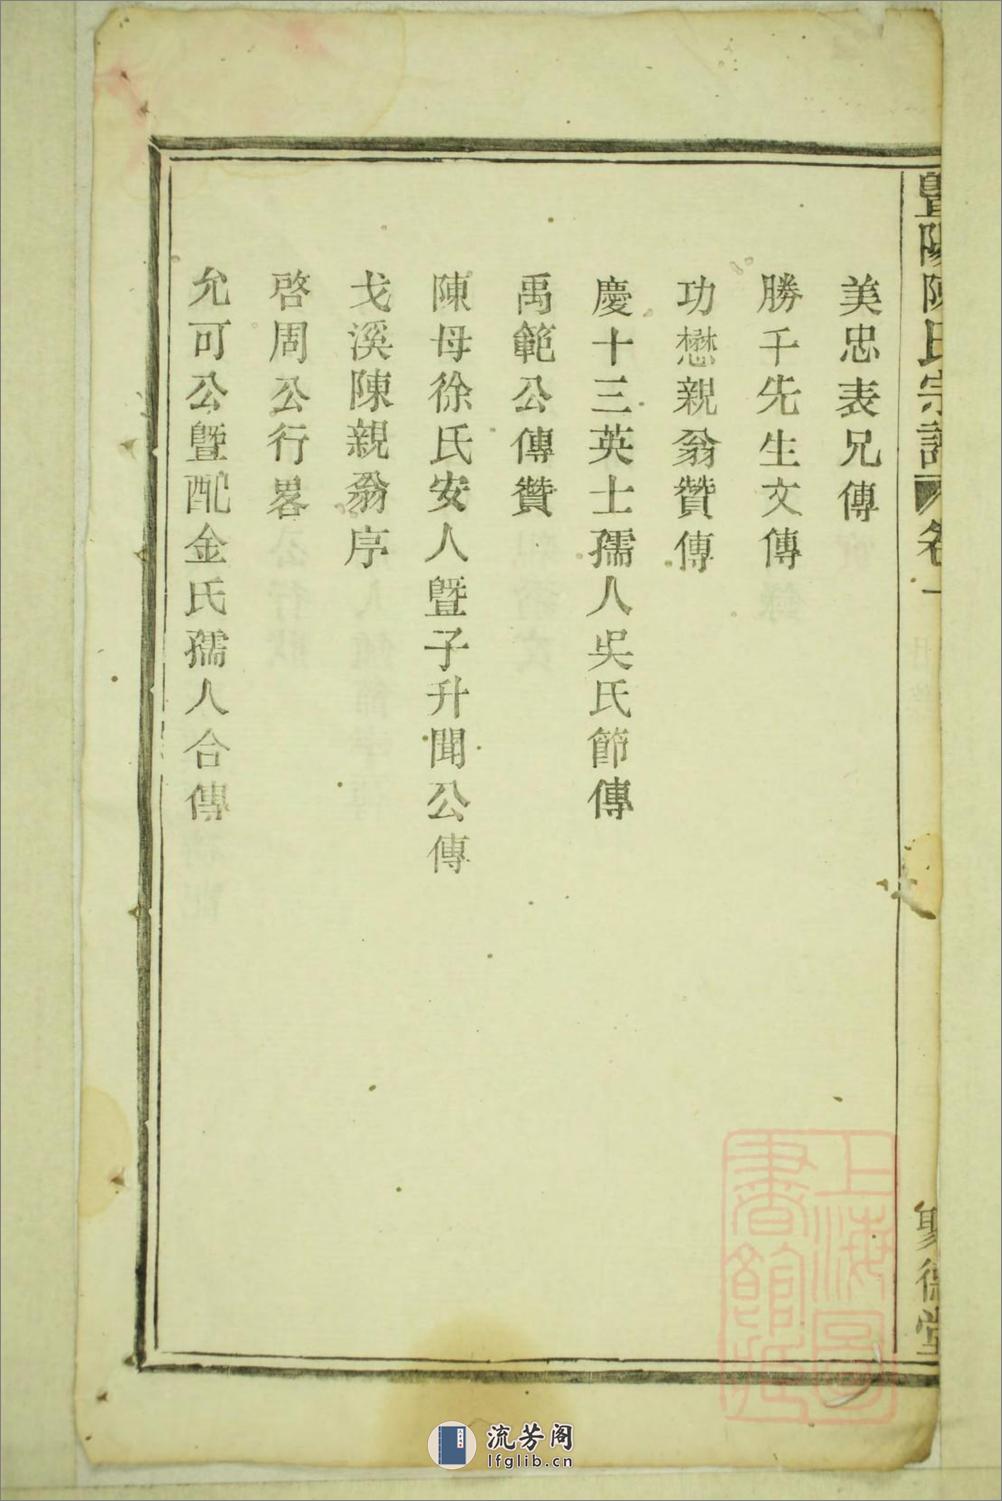 暨陽陳氏宗譜 卷一
聚德堂
美忠表兄傳
勝千先生文傳
功懋親翁贊傳
慶十三英士孺人吳氏節傳
禹範公傳贊
陳母徐氏安人暨子升聞公傳
戈溪陳親翁序
啓周公行畧
允可公暨配金氏孺人合傳
上海圖書館藏
流芳阁
lfglib.cn